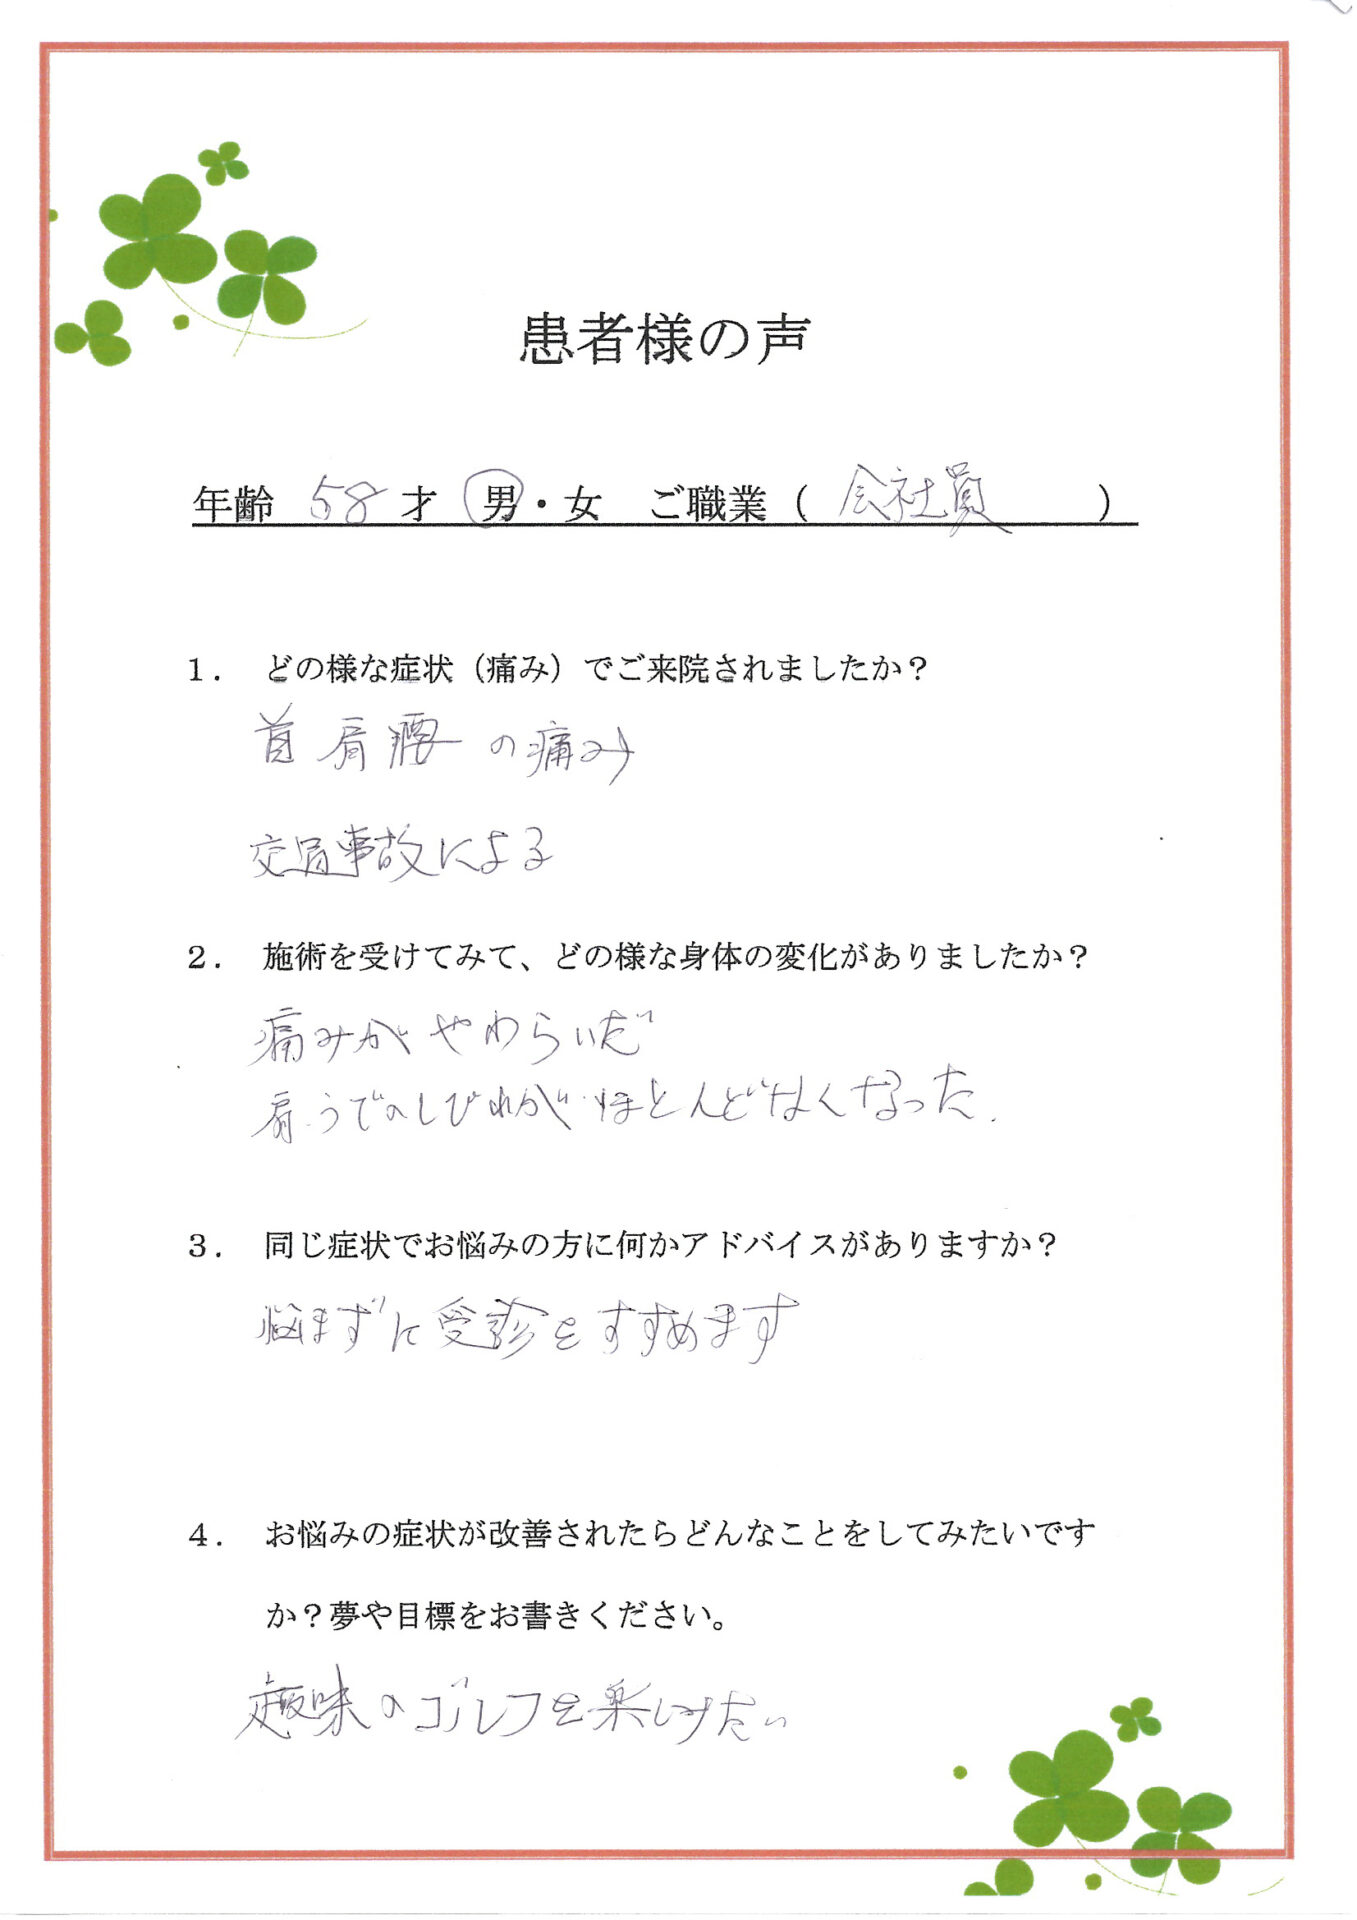 患者様の声
年齢 58 才 男・女 ご職業（ 会社員 ）
１． どの様な症状（痛み）でご来院されましたか？
首 肩 腰 の痛み
交通事故による
２． 施術を受けてみて、どの様な身体の変化がありましたか？
痛みが やわらいだ
肩 うでのしびれが ほとんどなくなった.
３． 同じ症状でお悩みの方に何かアドバイスがありますか？
悩まずに受診をすすめます
４． お悩みの症状が改善されたらどんなことをしてみたいです
か？夢や目標をお書きください。
趣味のゴルフを楽しみたい